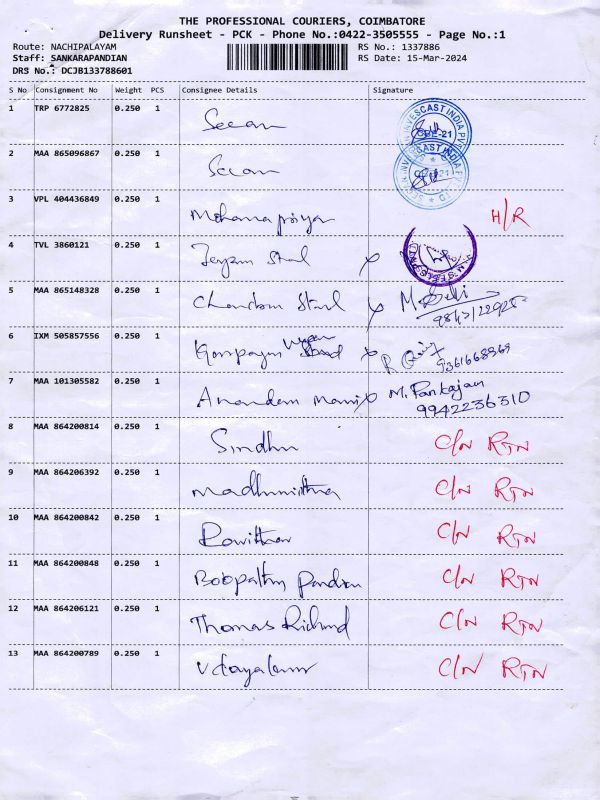 THE PROFESSIONAL COURIERS, COIMBATORE
Delivery Runsheet - PCK - Phone No.:0422-3505555 - Page No.:1
Route: NACHIPALAYAM RS No.: 1337886
Staff: SANKARAPANDIAN RS Date: 15-Mar-2024
DRS No.: DCJB133788601
S No Consignment No Weight PCS Consignee Details Signature
1 TRP 6772825 0.250 1
2 MAA 865096867 0.250 1
3 VPL 404436849 0.250 1 Mohanapriya H/R
4 TVL 3860121 0.250 1 Jeyam Steel x
5 MAA 865148328 0.250 1 x
6 IXM 505857556 0.250 1 x 9361668369
7 MAA 101305582 0.250 1 Anandam x M. Pankajan
9942236310
8 MAA 864200814 0.250 1 Sindhu C/N RTN
9 MAA 864206392 0.250 1 Madhumithra C/N RTN
10 MAA 864200842 0.250 1 C/N RTN
11 MAA 864200848 0.250 1 Boopathy Pandian C/N RTN
12 MAA 864206121 0.250 1 Thomas Richard C/N RTN
13 MAA 864200789 0.250 1 Udayakumar C/N RTN